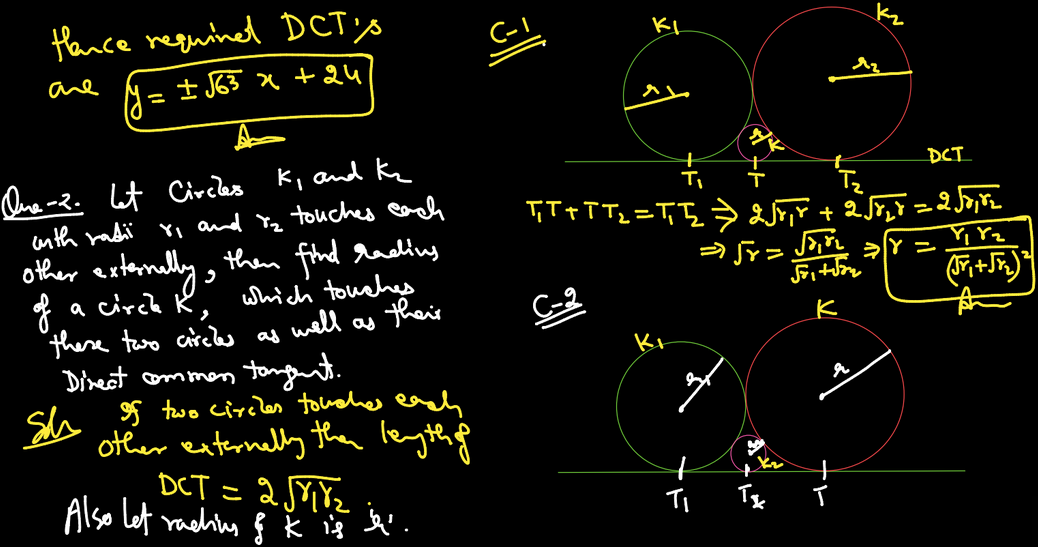 Hence required DCT's
are y = ± √63 x + 24
Ans
Que-2. Let Circles K₁ and K₂
with radii r₁ and r₂ touches each
other externally, then find radius
of a circle K, which touches
these two circles as well as their
Direct common tangent.
Sol. If two circles touches each
other externally then length of
DCT = 2√r₁r₂
Also let radius of K is 'r'.
C-1
K₁
K₂
r₁
r₂
r
K
DCT
T₁ T T₂
T₁T + TT₂ = T₁T₂ ⇒ 2√r₁r + 2√r₂r = 2√r₁r₂
⇒ √r = √r₁r₂ / (√r₁+√r₂) ⇒ r = r₁ r₂ / (√r₁+√r₂)²
Ans
C-2
K₁
K
r₁
r
K₂
T₁ T₂ T